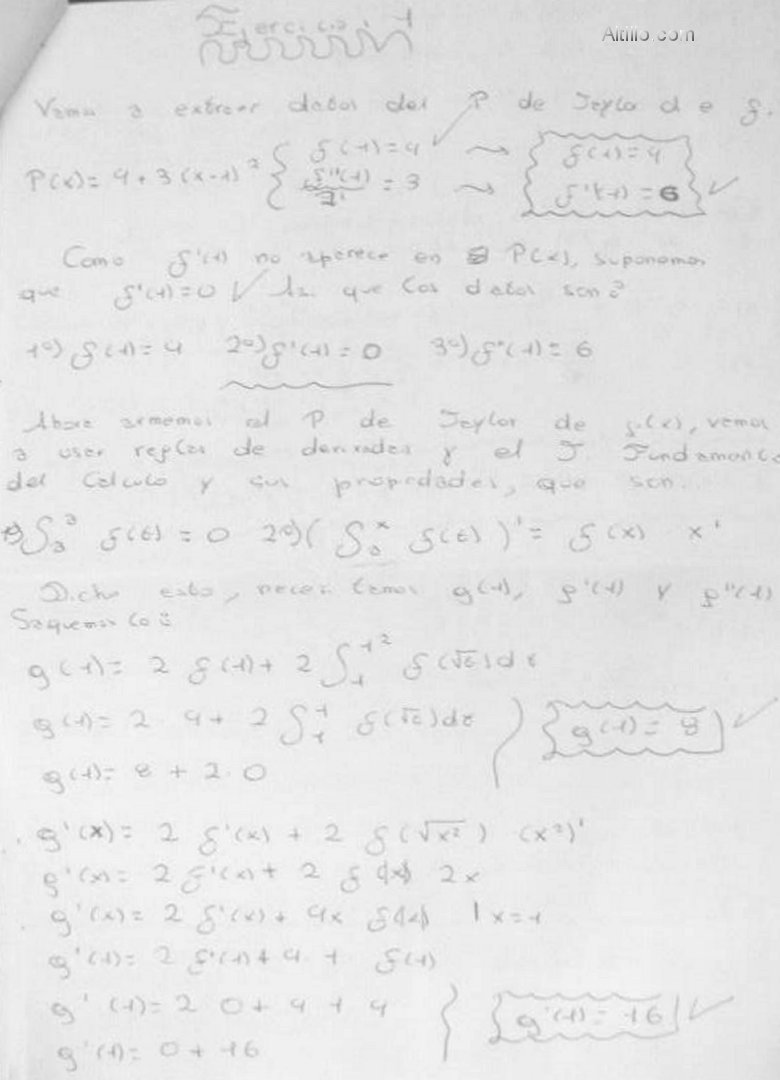 Ejercicio 1
Altillo.com
Vamos a extraer datos del P de Taylor de f.
P(x)= 4+3(x-1)² { f(1)=4 → f(1)=4
f''(1)/2! = 3 → f''(1)=6 ✓
Como f'(1) no aparece en P(x), suponemos
que f'(1)=0 ✓ Así que los datos son:
1º) f(1)=4 2º) f'(1)=0 3º) f''(1)=6
Ahora armemos el P de Taylor de g(x), vamos
a usar reglas de derivadas y el T. Fundamental
del Calculo y sus propiedades, que son:
1º) ∫ₐᵃ f(t) = 0 2º) (∫ₐˣ f(t))' = f(x) x'
Dicho esto, necesitamos g(1), g'(1) y g''(1)
Saquemoslo:
g(1)= 2 f(1)+ 2 ∫₁^1² f(√t)dt
g(1)= 2 . 4+ 2 ∫₁¹ f(√t)dt
g(1)= 8 + 2.0
g(1)= 8 ✓
g'(x)= 2 f'(x) + 2 f(√x²) (x²)'
g'(x)= 2 f'(x)+ 2 f(|x|) 2x
g'(x)= 2 f'(x)+ 4x f(|x|) | x=1
g'(1)= 2 f'(1)+4 . 1 f(1)
g'(1)= 2 . 0 + 4 . 1 . 4
g'(1)= 0 + 16
g'(1)= 16 ✓